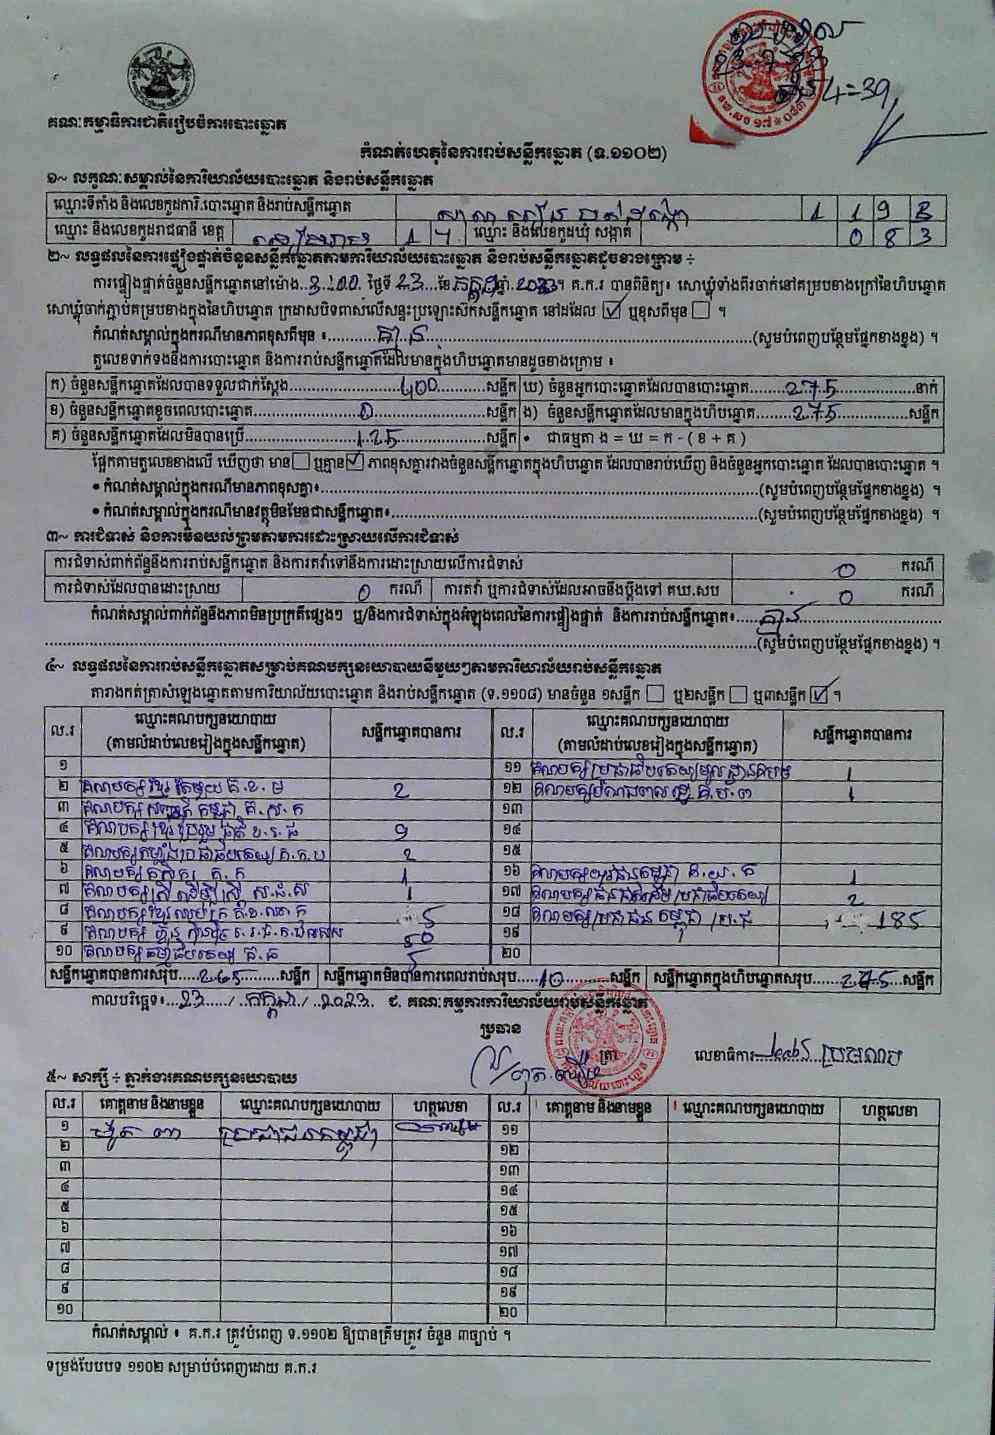 គណៈកម្មាធិការជាតិរៀបចំការបោះឆ្នោត
កំណត់ហេតុនៃការរាប់សន្លឹកឆ្នោត (ទ.១១០២)
១~ លក្ខណៈសម្គាល់នៃការិយាល័យបោះឆ្នោត និងរាប់សន្លឹកឆ្នោត
ឈ្មោះទីតាំង និងលេខកូដការិ.បោះឆ្នោត និងរាប់សន្លឹកឆ្នោត 1 1 9 3
ឈ្មោះ និងលេខកូដរាជធានី ខេត្ត សៀមរាប 1 7 ឈ្មោះ និងលេខកូដឃុំ សង្កាត់ 0 8 3
២~ លទ្ធផលនៃការផ្ទៀងផ្ទាត់ចំនួនសន្លឹកឆ្នោតតាមការិយាល័យបោះឆ្នោត និងរាប់សន្លឹកឆ្នោតដូចខាងក្រោម ÷
ការផ្ទៀងផ្ទាត់ចំនួនសន្លឹកឆ្នោតនៅម៉ោង 3:00 ថ្ងៃទី 23 ខែ កក្កដា ឆ្នាំ 2023។ គ.ក.រ បានពិនិត្យ៖ សោឃ្លុំទាំងពីរចាក់នៅគម្របខាងក្រៅនៃហិបឆ្នោត
សោឃ្លុំចាក់ភ្ជាប់គម្របខាងក្នុងនៃហិបឆ្នោត ក្រដាសបិទពាស់លើសន្ទះប្រឡោះស៊កសន្លឹកឆ្នោត នៅដដែល ☑ ឬខុសពីមុន ☐ ។
កំណត់សម្គាល់ក្នុងករណីមានភាពខុសពីមុន ៖ គ្មាន (សូមបំពេញបន្ថែមផ្នែកខាងខ្នង) ។
តួលេខទាក់ទងនឹងការបោះឆ្នោត និងការរាប់សន្លឹកឆ្នោតដែលមានក្នុងហិបឆ្នោតមានដូចខាងក្រោម ៖
ក) ចំនួនសន្លឹកឆ្នោតដែលបានទទួលជាក់ស្តែង 400 សន្លឹក ឃ) ចំនួនអ្នកបោះឆ្នោតដែលបានបោះឆ្នោត 275 នាក់
ខ) ចំនួនសន្លឹកឆ្នោតខូចពេលបោះឆ្នោត 0 សន្លឹក ង) ចំនួនសន្លឹកឆ្នោតដែលមានក្នុងហិបឆ្នោត 275 សន្លឹក
គ) ចំនួនសន្លឹកឆ្នោតដែលមិនបានប្រើ 125 សន្លឹក • ជាធម្មតា ង = ឃ = ក - ( ខ + គ )
ផ្អែកតាមតួលេខខាងលើ ឃើញថា មាន ☐ ឬគ្មាន ☑ ភាពខុសគ្នារវាងចំនួនសន្លឹកឆ្នោតក្នុងហិបឆ្នោត ដែលបានរាប់ឃើញ និងចំនួនអ្នកបោះឆ្នោត ដែលបានបោះឆ្នោត ។
• កំណត់សម្គាល់ក្នុងករណីមានភាពខុសគ្នា៖ (សូមបំពេញបន្ថែមផ្នែកខាងខ្នង) ។
• កំណត់សម្គាល់ក្នុងករណីមានវត្ថុមិនមែនជាសន្លឹកឆ្នោត៖ (សូមបំពេញបន្ថែមផ្នែកខាងខ្នង) ។
៣~ ការជំទាស់ និងការមិនយល់ព្រមតាមការដោះស្រាយលើការជំទាស់
ការជំទាស់ពាក់ព័ន្ធនឹងការរាប់សន្លឹកឆ្នោត និងការតវ៉ាទៅនឹងការដោះស្រាយលើការជំទាស់ 0 ករណី
ការជំទាស់ដែលបានដោះស្រាយ 0 ករណី ការតវ៉ា ឬការជំទាស់ដែលអាចនឹងប្តឹងទៅ គឃ.សប 0 ករណី
កំណត់សម្គាល់ពាក់ព័ន្ធនឹងភាពមិនប្រក្រតីផ្សេងៗ ឬ/និងការជំទាស់ក្នុងអំឡុងពេលនៃការផ្ទៀងផ្ទាត់ និងការរាប់សន្លឹកឆ្នោត៖ គ្មាន
(សូមបំពេញបន្ថែមផ្នែកខាងខ្នង) ។
៤~ លទ្ធផលនៃការរាប់សន្លឹកឆ្នោតសម្រាប់គណបក្សនយោបាយនីមួយៗតាមការិយាល័យរាប់សន្លឹកឆ្នោត
តារាងកត់ត្រាសំឡេងឆ្នោតតាមការិយាល័យបោះឆ្នោត និងរាប់សន្លឹកឆ្នោត (ទ.១១០៨) មានចំនួន ១សន្លឹក ☐ ឬ២សន្លឹក ☐ ឬ៣សន្លឹក ☑ ។
ល.រ ឈ្មោះគណបក្សនយោបាយ (តាមលំដាប់លេខរៀងក្នុងសន្លឹកឆ្នោត) សន្លឹកឆ្នោតបានការ ល.រ ឈ្មោះគណបក្សនយោបាយ (តាមលំដាប់លេខរៀងក្នុងសន្លឹកឆ្នោត) សន្លឹកឆ្នោតបានការ
១ ១១ គណបក្សប្រជាធិបតេយ្យមូលដ្ឋាន 1
២ គណបក្សខ្មែរតែមួយ គ.ខ.ម 2 ១២ 1
៣ ១៣
៤ គណបក្សខ្មែររួបរួមជាតិ 9 ១៤
៥ 2 ១៥
៦ គណបក្សកសិករ គ.ក 1 ១៦ គណបក្សយុវជនកម្ពុជា គ.យ.ក 1
៧ គណបក្សស្ត្រីដើម្បីស្ត្រី 1 ១៧ 2
៨ 5 ១៨ គណបក្សប្រជាជនកម្ពុជា 185
៩ 50 ១៩
១០ 5 ២០
សន្លឹកឆ្នោតបានការសរុប 265 សន្លឹក សន្លឹកឆ្នោតមិនបានការពេលរាប់សរុប 10 សន្លឹក សន្លឹកឆ្នោតក្នុងហិបឆ្នោតសរុប 275 សន្លឹក
កាលបរិច្ឆេទ៖ 23 / កក្កដា / 2023 ៩. គណៈកម្មការការិយាល័យរាប់សន្លឹកឆ្នោត
ប្រធាន
ត្រា លេខាធិការ
៥~ សាក្សី ÷ ភ្នាក់ងារគណបក្សនយោបាយ
ល.រ គោត្តនាម និងនាមខ្លួន ឈ្មោះគណបក្សនយោបាយ ហត្ថលេខា ល.រ គោត្តនាម និងនាមខ្លួន ឈ្មោះគណបក្សនយោបាយ ហត្ថលេខា
១ ប្រជាជនកម្ពុជា ១១
២ ១២
៣ ១៣
៤ ១៤
៥ ១៥
៦ ១៦
៧ ១៧
៨ ១៨
៩ ១៩
១០ ២០
កំណត់សម្គាល់ ៖ គ.ក.រ ត្រូវបំពេញ ទ.១១០២ ឱ្យបានត្រឹមត្រូវ ចំនួន ៣ច្បាប់ ។
ទម្រង់បែបបទ ១១០២ សម្រាប់បំពេញដោយ គ.ក.រ